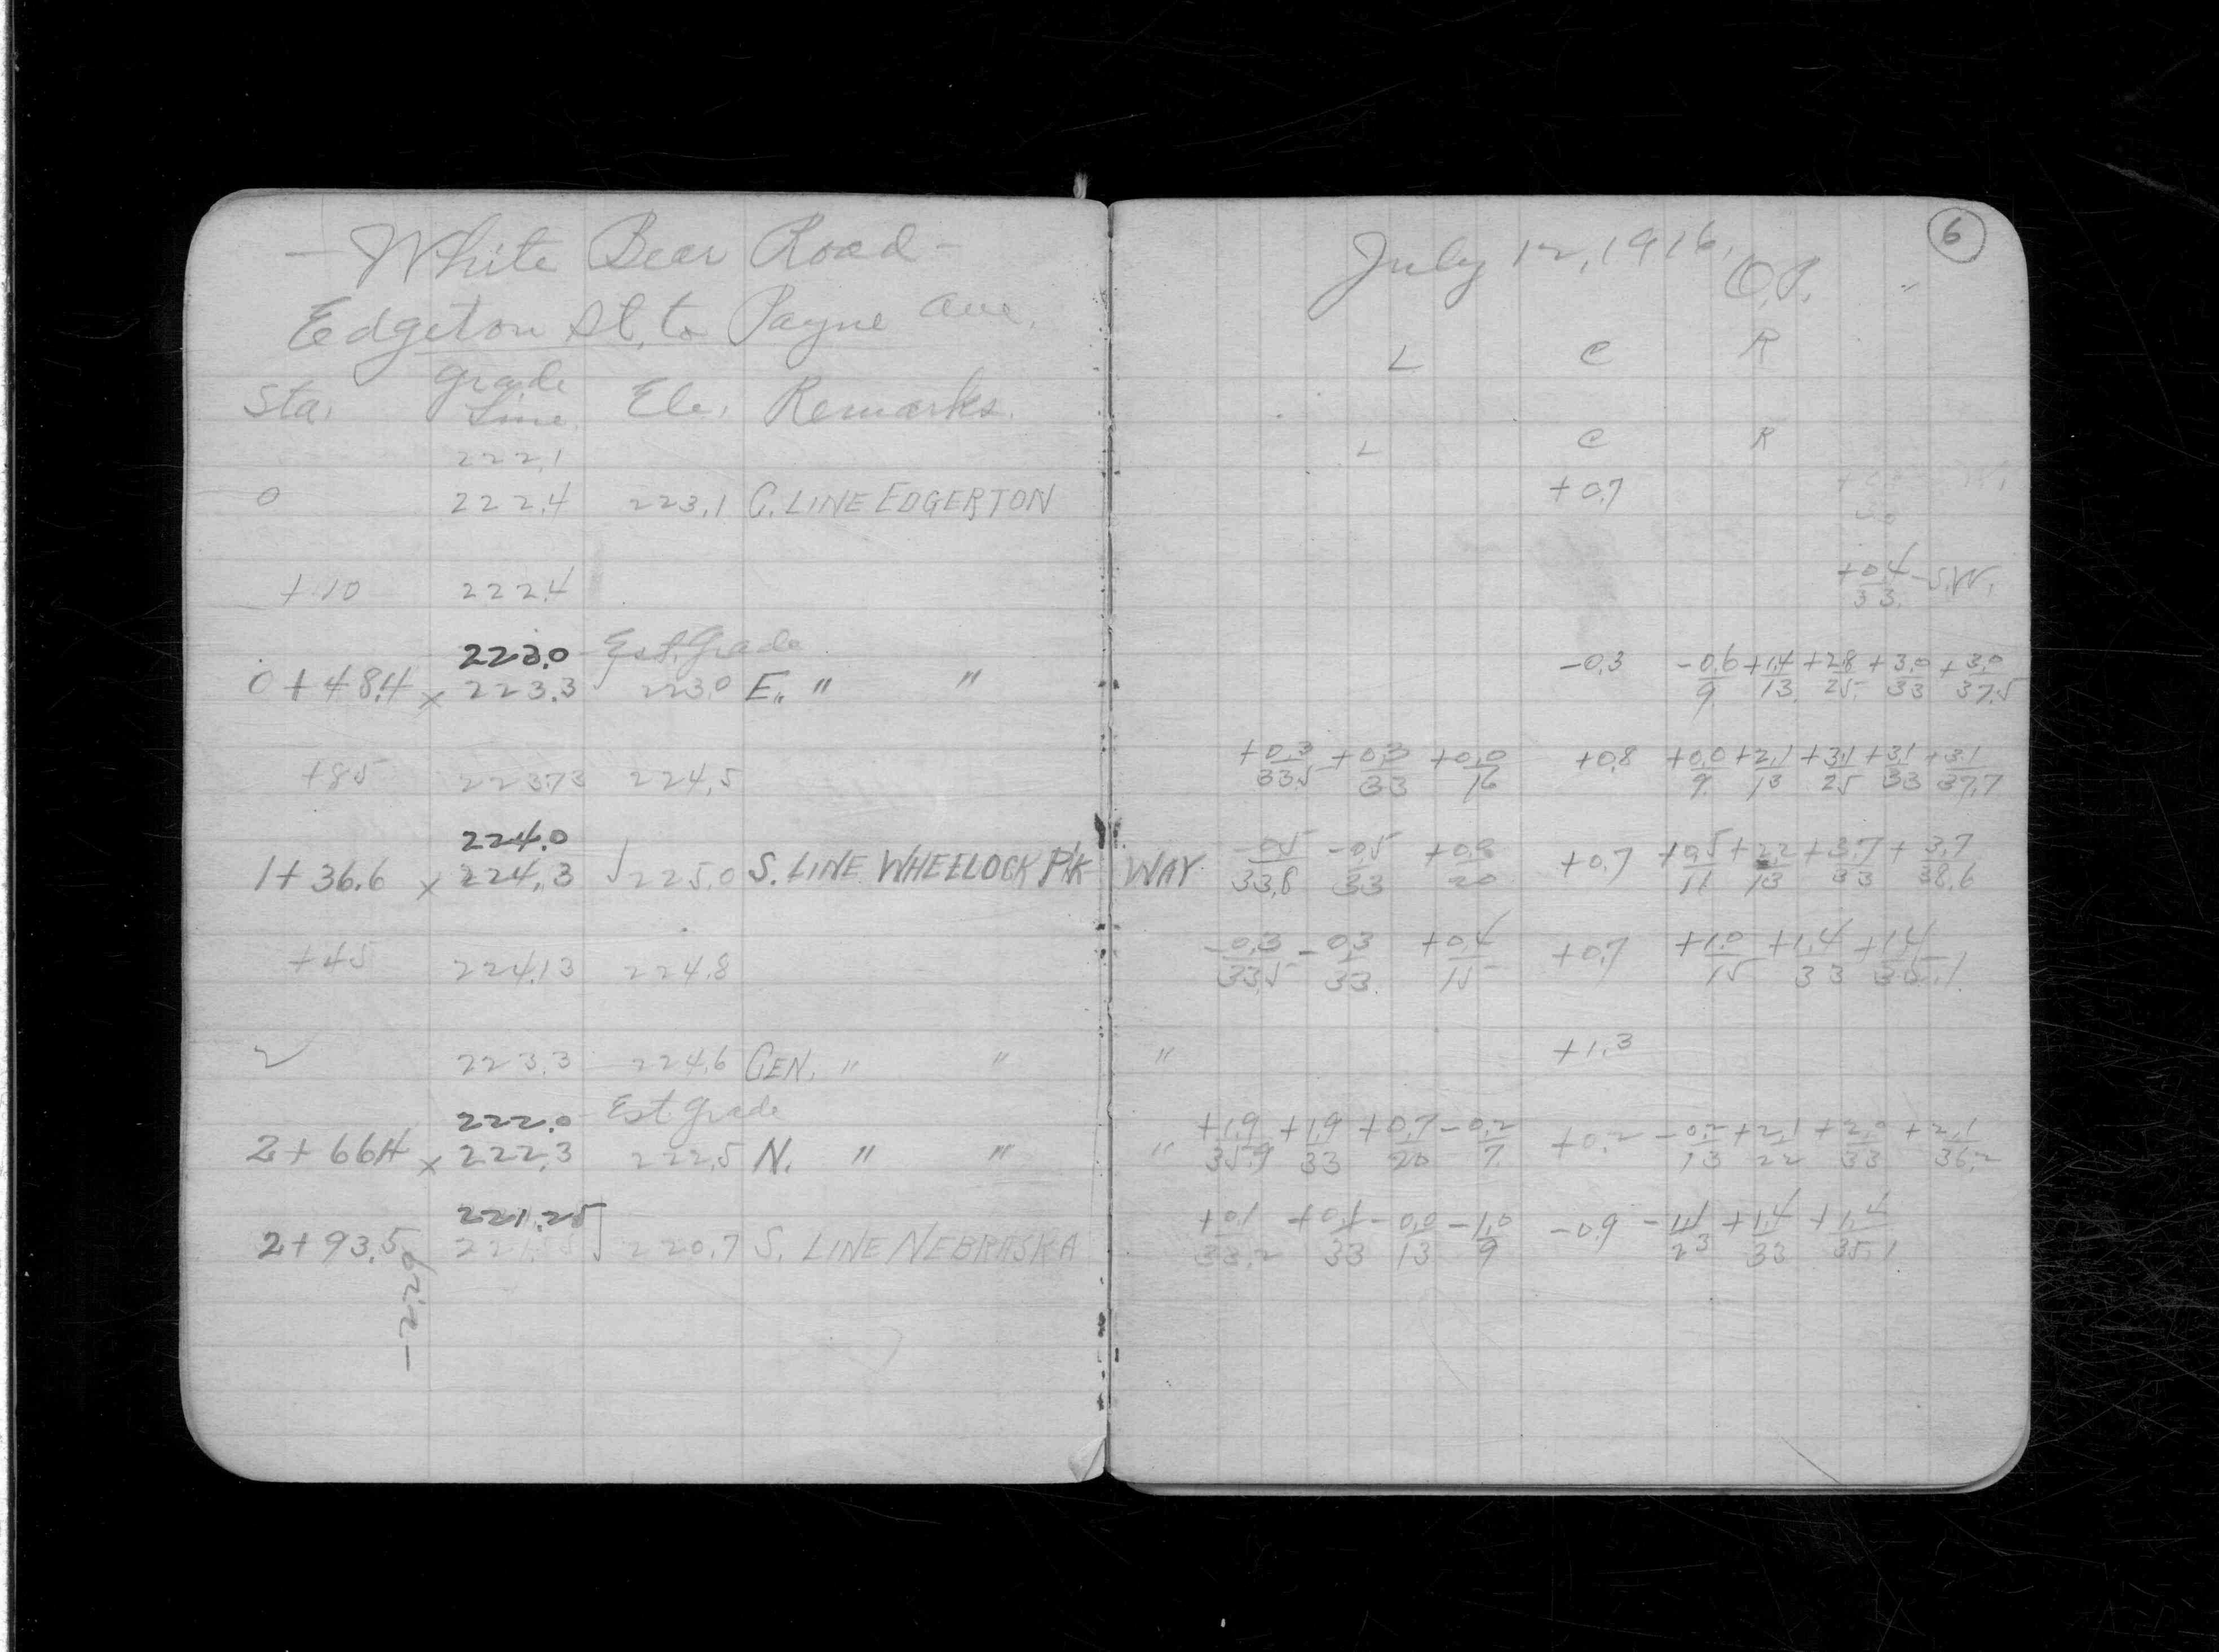 — White Bear Road —
Edgeton St, to Payne Ave.
Sta. Grade Line Ele. Remarks.
222.1
0 222.4 223.1 C. LINE EDGERTON
+10 222.4
223.0 - Est. Grade
0+48.4 x 223.3 223.0 E. " "
+85 223.73 224.5
224.0
1+36.6 x 224.3 225.0 S. LINE WHEELOCK P'K
+45 224.13 224.8
2 223.3 224.6 CEN. " "
222.0 - Est Grade
2+66.4 x 222.3 222.5 N. " "
221.25
2+93.5 220.7 S. LINE NEBRASKA
-2.79
6
July 12, 1916,
O.P.
L C R
L C R
+0.7
+0.4/33. - S.W.
-0.3 -0.6/9. +1.4/13. +2.8/25. +3.0/33 +3.0/37.5
+0.3/33.5 +0.3/33 +0.0/16 +0.8 +0.0/9. +2.1/13 +3.1/25 +3.1/33 +3.1/37.7
WAY -0.5/33.8 -0.5/33 +0.8/20 +0.7 +0.5/11 +2.2/13 +3.7/33 +3.7/38.6
-0.3/33.5 -0.3/33. +0.4/15 +0.7 +1.0/15 +1.4/33 +1.4/35.1
" +1.3
" +1.9/35.9 +1.9/33 +0.7/20 -0.2/7. +0.2 -0.2/13 +2.1/22 +2.0/33 +2.1/36.2
+0.1/33.2 +0.1/33 -0.0/13 -1.0/9 -0.9 -1.1/23 +1.4/33 +1.4/35.1